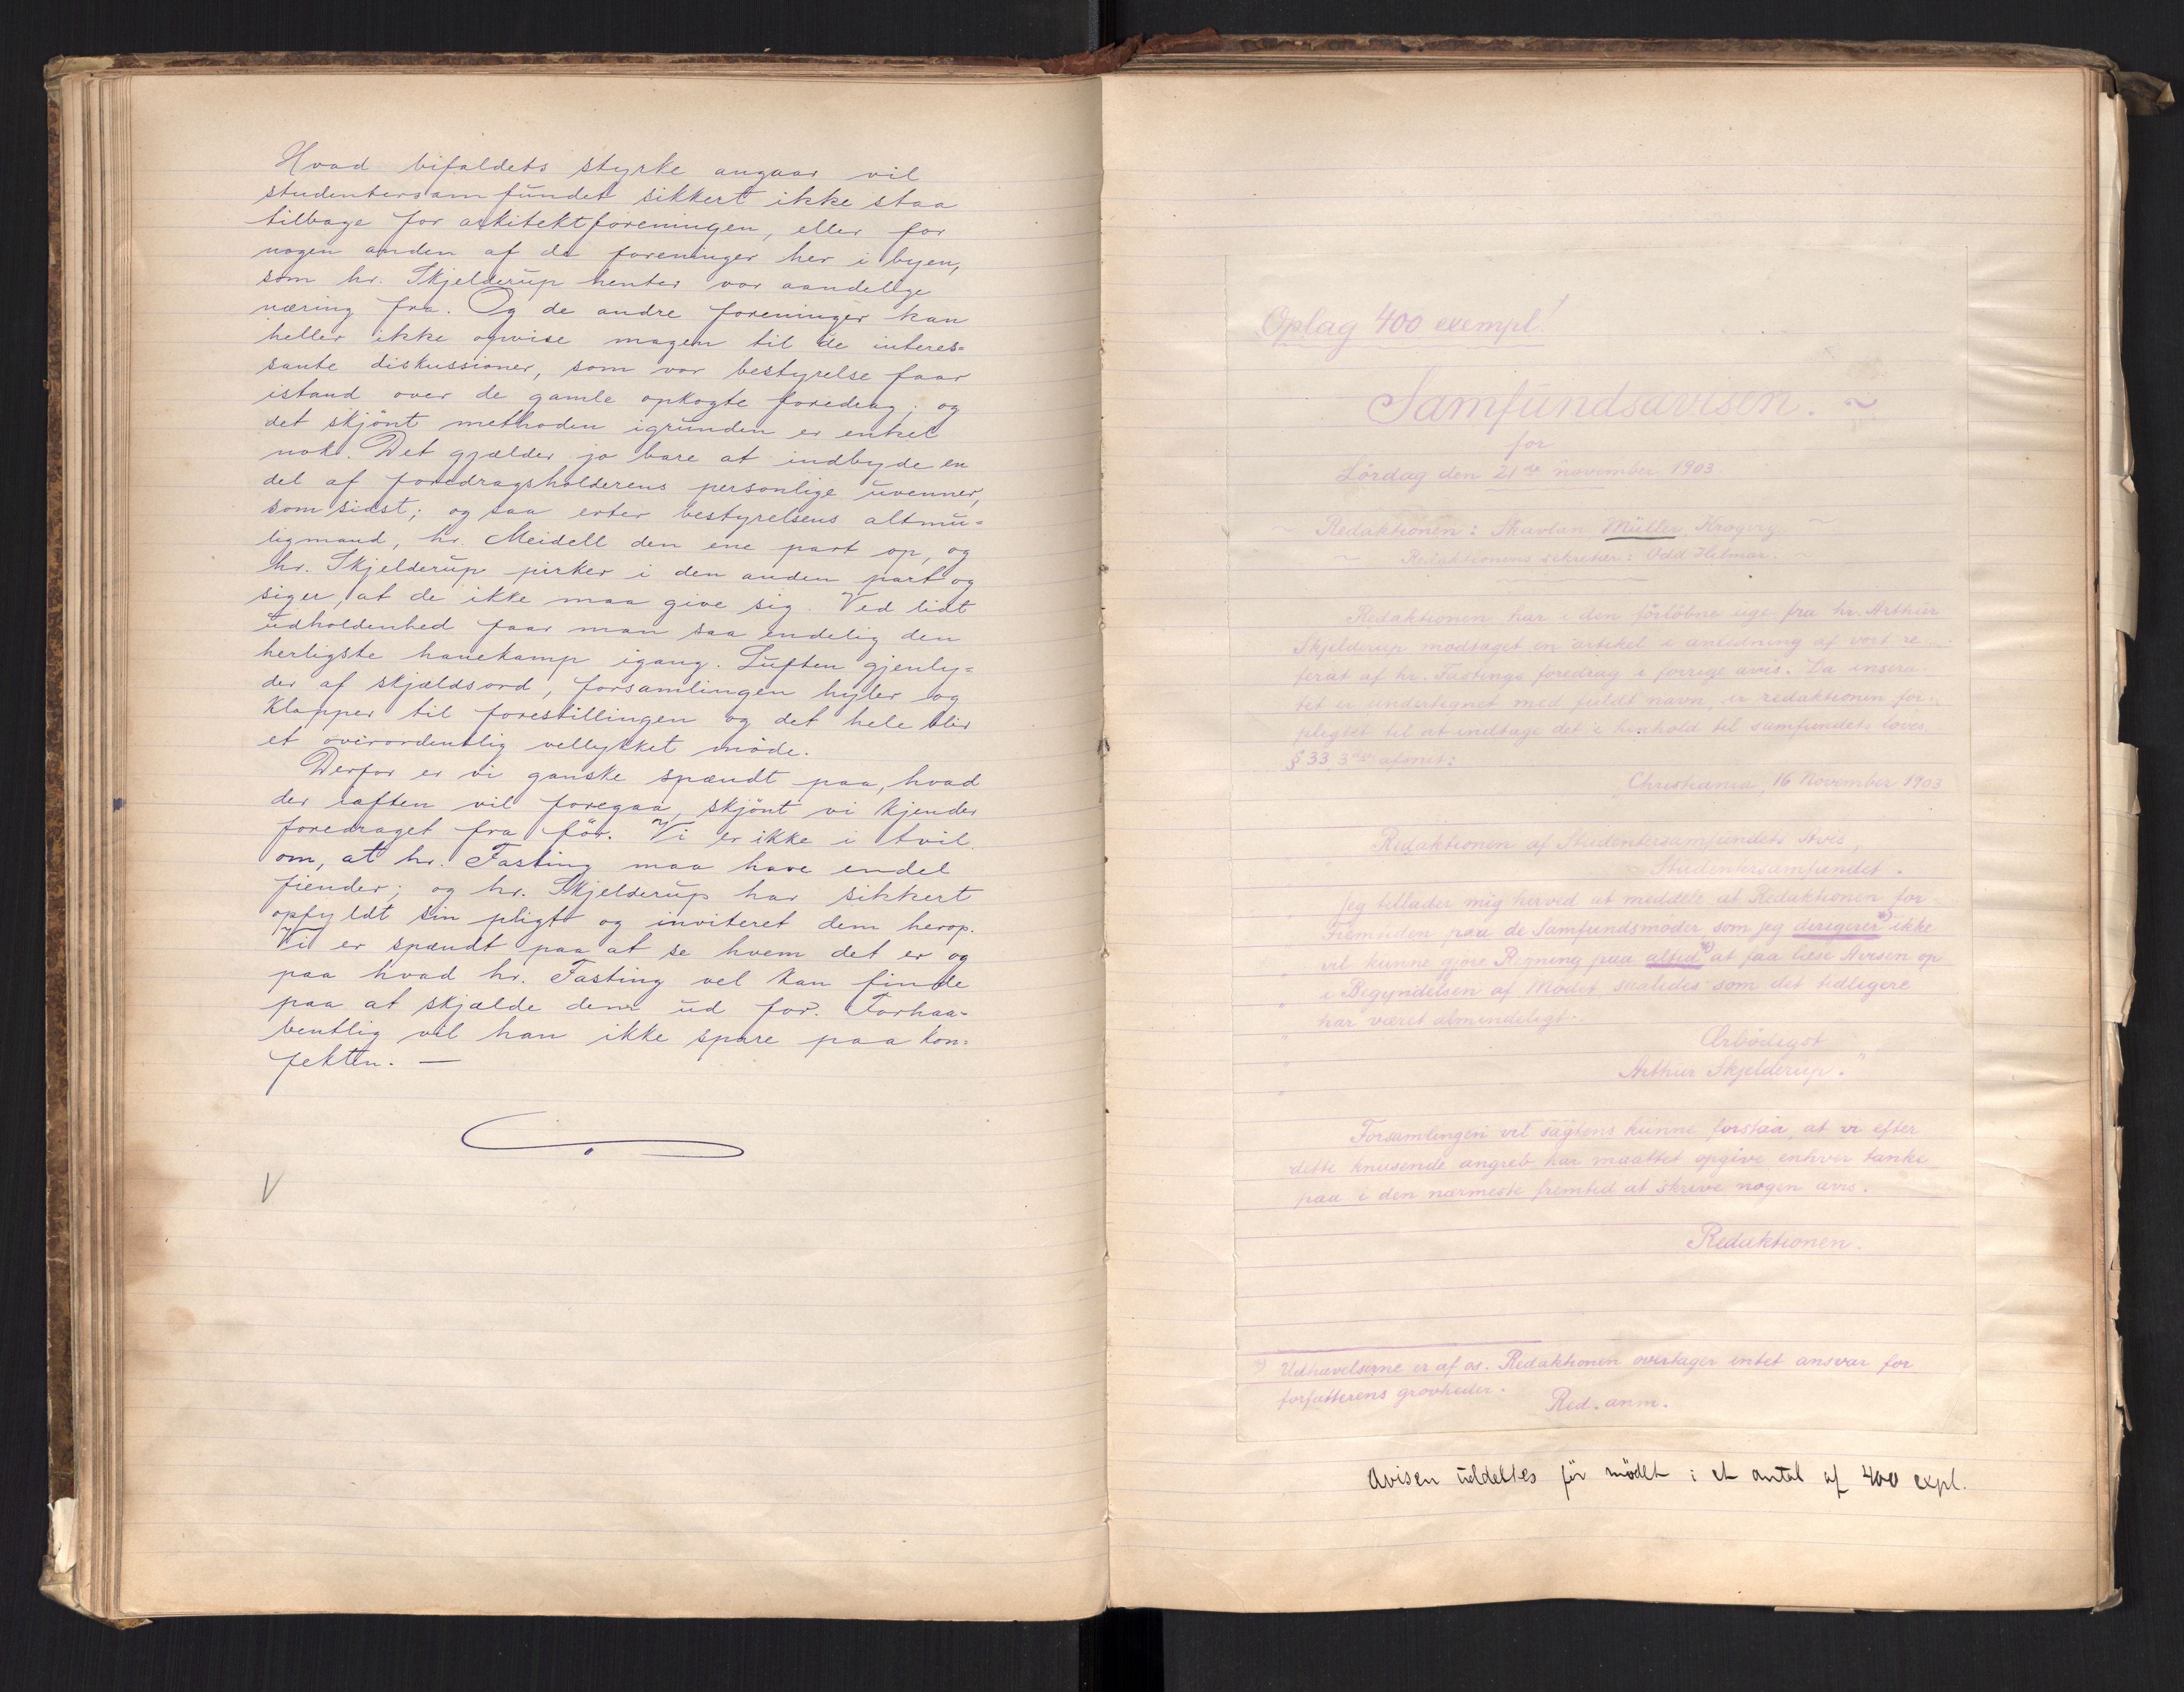 Hvad bifaldets styrke angaar vil
studentersamfundet sikkert ikke staa
tilbage for arkitektforeningen, eller for
nogen anden af de foreninger her i byen,
som hr. Skjelderup henter vor aandelige
næring fra. Og de andre foreninger kan
heller ikke opvise magen til de interes=
sante diskussioner, som vor bestyrelse faar
istand over de gamle opkogte foredrag; og
det skjönt methoden igrunden er enkel
nok. Det gjælder jo bare at indbyde en
del af foredragsholderens personlige uvenner,
som sidst; og saa erter bestyrelsens altmu=
ligmand, hr. Meidell den ene part op, og
hr. Skjelderup pirker i den anden part og
siger, at de ikke maa give sig. Ved lidt
udholdenhed faar man saa endelig den
herligste hanekamp igang. Luften gjenly=
der af skjældsord, forsamlingen hyler og
klapper til forestillingen og det hele blir
et overordentlig vellykket möde.
Derfor er vi ganske spændt paa, hvad
der iaften vil foregaa, skjönt vi kjender
foredraget fra för. Vi er ikke i tvil
om, at hr. Fasting maa have endel
fiender; og hr. Skjelderup har sikkert
opfyldt sin pligt og inviteret dem herop.
Vi er spændt paa at se hvem det er og
paa hvad hr. Fasting vel kan finde
paa at skjælde dem ud for. Forhaa=
bentlig vil han ikke spare paa kon=
fekten. —
V
Oplag 400 exempl!
Samfundsavisen. ~
for
Lördag den 21de november 1903.
~ Redaktionen: Skavlan, Müller, Krogvig ~
~ Redaktionens sekretær: Odd Hilmar. ~
Redaktionen har i den forløbne uge fra hr. Arthur
Skjelderup modtaget en artikel i anledning af vort re-
ferat af hr. Fastings foredrag i forrige avis. Da insera-
tet er undertegnet med fuldt navn, er redaktionen for-
pligtet til at indtage det i henhold til samfundets loves
§ 33, 3die afsnit:
Christiania, 16 November 1903
Redaktionen af Studentersamfundets Avis,
Studentersamfundet.
" Jeg tillader mig herved at meddele at Redaktionen for
" Fremtiden paa de Samfundsmøder som jeg derigerer*) ikke
" vil kunne gjøre Regning paa altid*) at faa læse Avisen op
" i Begyndelsen af Mødet saaledes som det tidligere
" har været almindeligt.
" Ærbødigst
" Arthur Skjelderup."
Forsamlingen vil sagtens kunne forstaa, at vi efter
dette knusende angreb har maattet opgive enhver tanke
paa i den nærmeste fremtid at skrive nogen avis.
Redaktionen.
*) Udhævelserne er af os. Redaktionen overtager intet ansvar for
forfatterens grovheder.
Red. anm.
Avisen uddeltes för mödet i et antal af 400 expl.